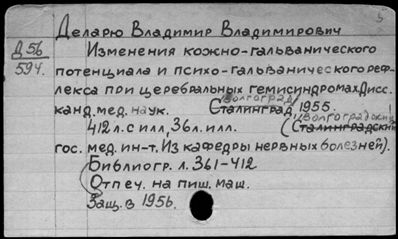 5
Деларю Владимир Владимирович
Д 56
594.
Изменения кожно-гальванического
потенциала и психо-гальванического реф-
лекса при церебральных гемисиндромах Дисс.
канд. мед. наук. Сталинград, 1955.
Волгоград
412 л. с илл, 36 л. илл. (Сталинградский
Волгоградский
гос. мед. ин-т. Из кафедры нервных болезней).
Библиогр. л. 361-412
Отпеч. на пиш. маш.
Защ. в 1956.